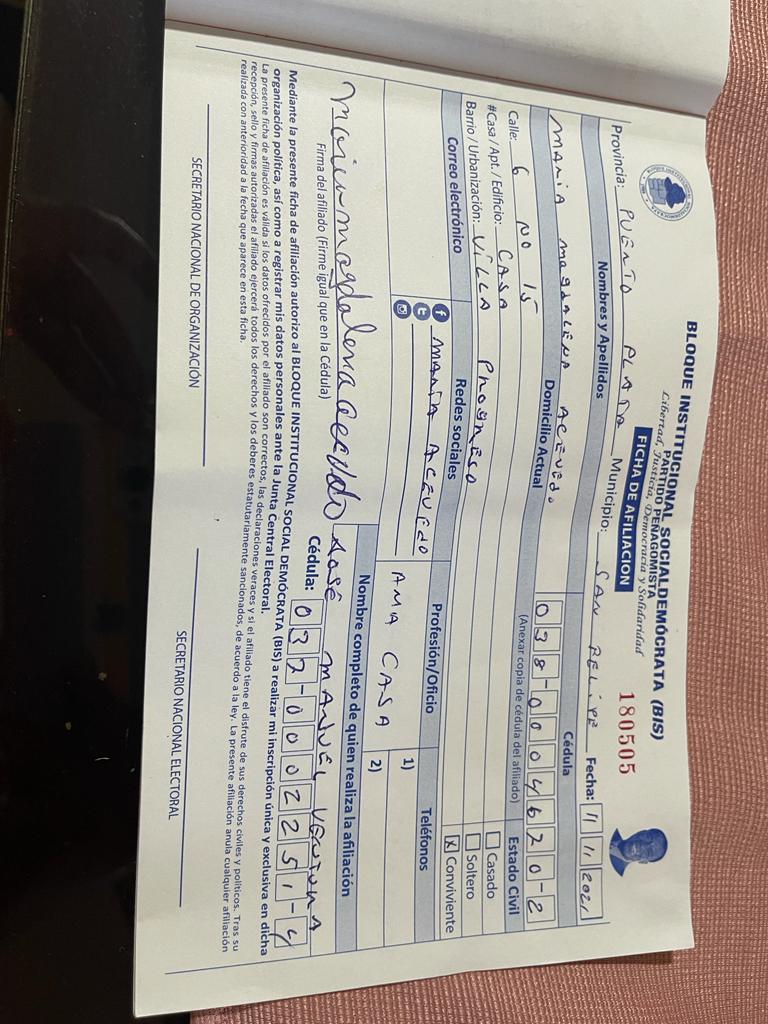 BLOQUE INSTITUCIONAL SOCIALDEMÓCRATA (BIS)
PARTIDO PEÑAGOMISTA
Libertad, Justicia, Democracia y Solidaridad
FICHA DE AFILIACION
180505
Provincia: PUERTO PLATA Municipio: SAN FELIPE Fecha: 11 11 2021
Nombres y Apellidos
Cédula
MARIA MAGDALENA ACEVEDO
038-0004620-2
Domicilio Actual
(Anexar copia de cédula del afiliado)
Estado Civil
Calle: 6 NO 15
#Casa / Apt. / Edificio: CASA
Barrio / Urbanización: VILLA PROGRESO
Casado
Soltero
X Conviviente
Correo electrónico
Redes sociales
Profesión/Oficio
Teléfonos
MARIA ACEVEDO
AMA CASA
1)
2)
Nombre completo de quien realiza la afiliación
Maria Magdalena Acevedo
José MANUEL VENTURA
Firma del afiliado (Firme igual que en la Cédula)
Cédula: 037-0002251-4
Mediante la presente ficha de afiliación autorizo al BLOQUE INSTITUCIONAL SOCIAL DEMÓCRATA (BIS) a realizar mi inscripción única y exclusiva en dicha
organización política, así como a registrar mis datos personales ante la Junta Central Electoral.
La presente ficha de afiliación es válida si los datos ofrecidos por el afiliado son correctos, las declaraciones veraces y si el afiliado tiene el disfrute de sus derechos civiles y políticos. Tras su
recepción, sello y firmas autorizadas el afiliado ejercerá todos los derechos y los deberes estatutariamente sancionados, de acuerdo a la ley. La presente afiliación anula cualquier afiliación
realizada con anterioridad a la fecha que aparece en esta ficha.
SECRETARIO NACIONAL DE ORGANIZACIÓN
SECRETARIO NACIONAL ELECTORAL